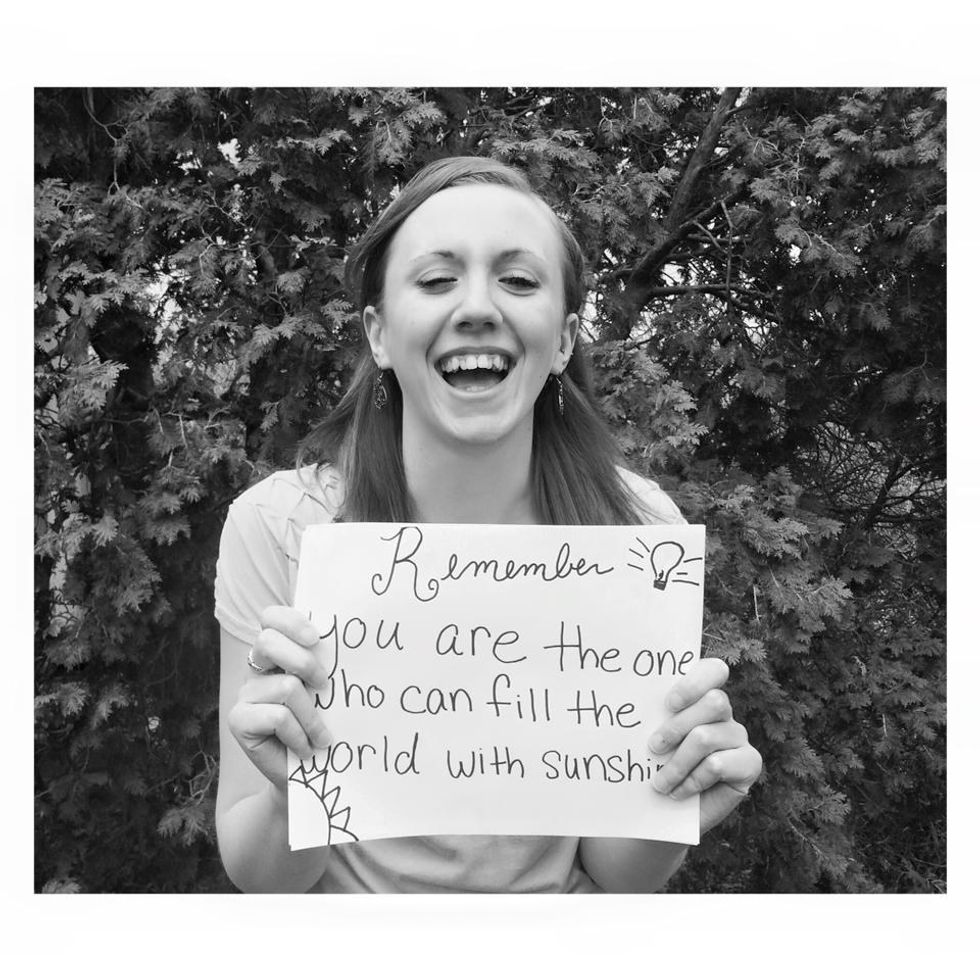 Remember
you are the one
who can fill the
world with sunshin